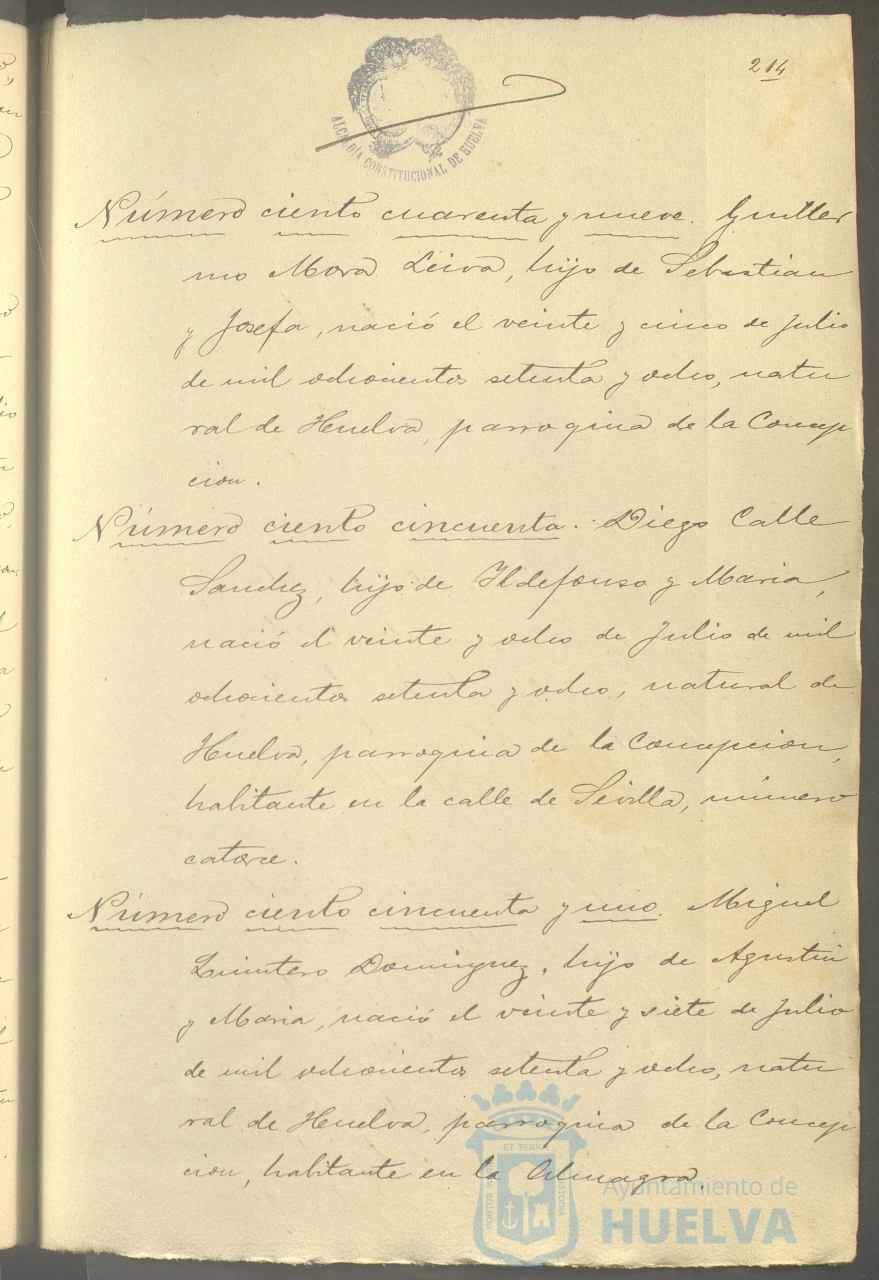 214
ALCALDÍA CONSTITUCIONAL DE HUELVA
Número ciento cuarenta y nueve. Guiller
mo Mora Leiva, hijo de Sebastian
y Josefa, nació el veinte y cinco de Julio
de mil ochocientos setenta y ocho, natu
ral de Huelva, parroquia de la Concep
cion.
Número ciento cincuenta. Diego Calle
Sanchez, hijo de Ildefonso y Maria,
nació el veinte y ocho de Julio de mil
ochocientos setenta y ocho, natural de
Huelva, parroquia de la Concepcion,
habitante en la calle de Sevilla, número
catorce.
Número ciento cincuenta y uno. Miguel
Quintero Dominguez, hijo de Agustin
y Maria, nació el veinte y siete de Julio
de mil ochocientos setenta y ocho, natu
ral de Huelva, parroquia de la Concep
cion, habitante en la Almagra.
ET TERRA
PORTUS M
CUSTODIA
Ayuntamiento de
HUELVA